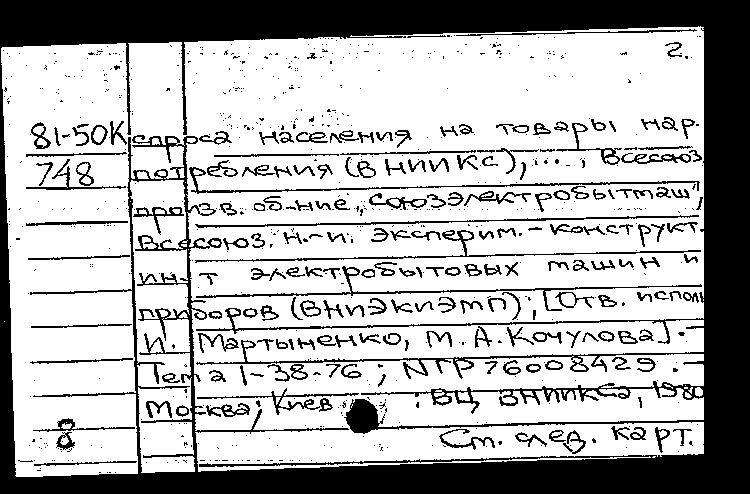 2.
81-50К спроса населения на товары нар.
748 потребления (ВНИИКС), ... , Всесоюз.
произв. об-ние „Союзэлектробытмаш",
Всесоюз. н.-и. эксперим.-конструкт.
ин-т электробытовых машин и
приборов (ВНИЭКИЭМП); [Отв. исполн.
И. Мартыненко, М. А. Кочулова]. -
Тема 1-38-76 ; NГР 76008429 . -
Москва; Киев : ВЦ ВНИИКСа, 1980
8 См. след. карт.